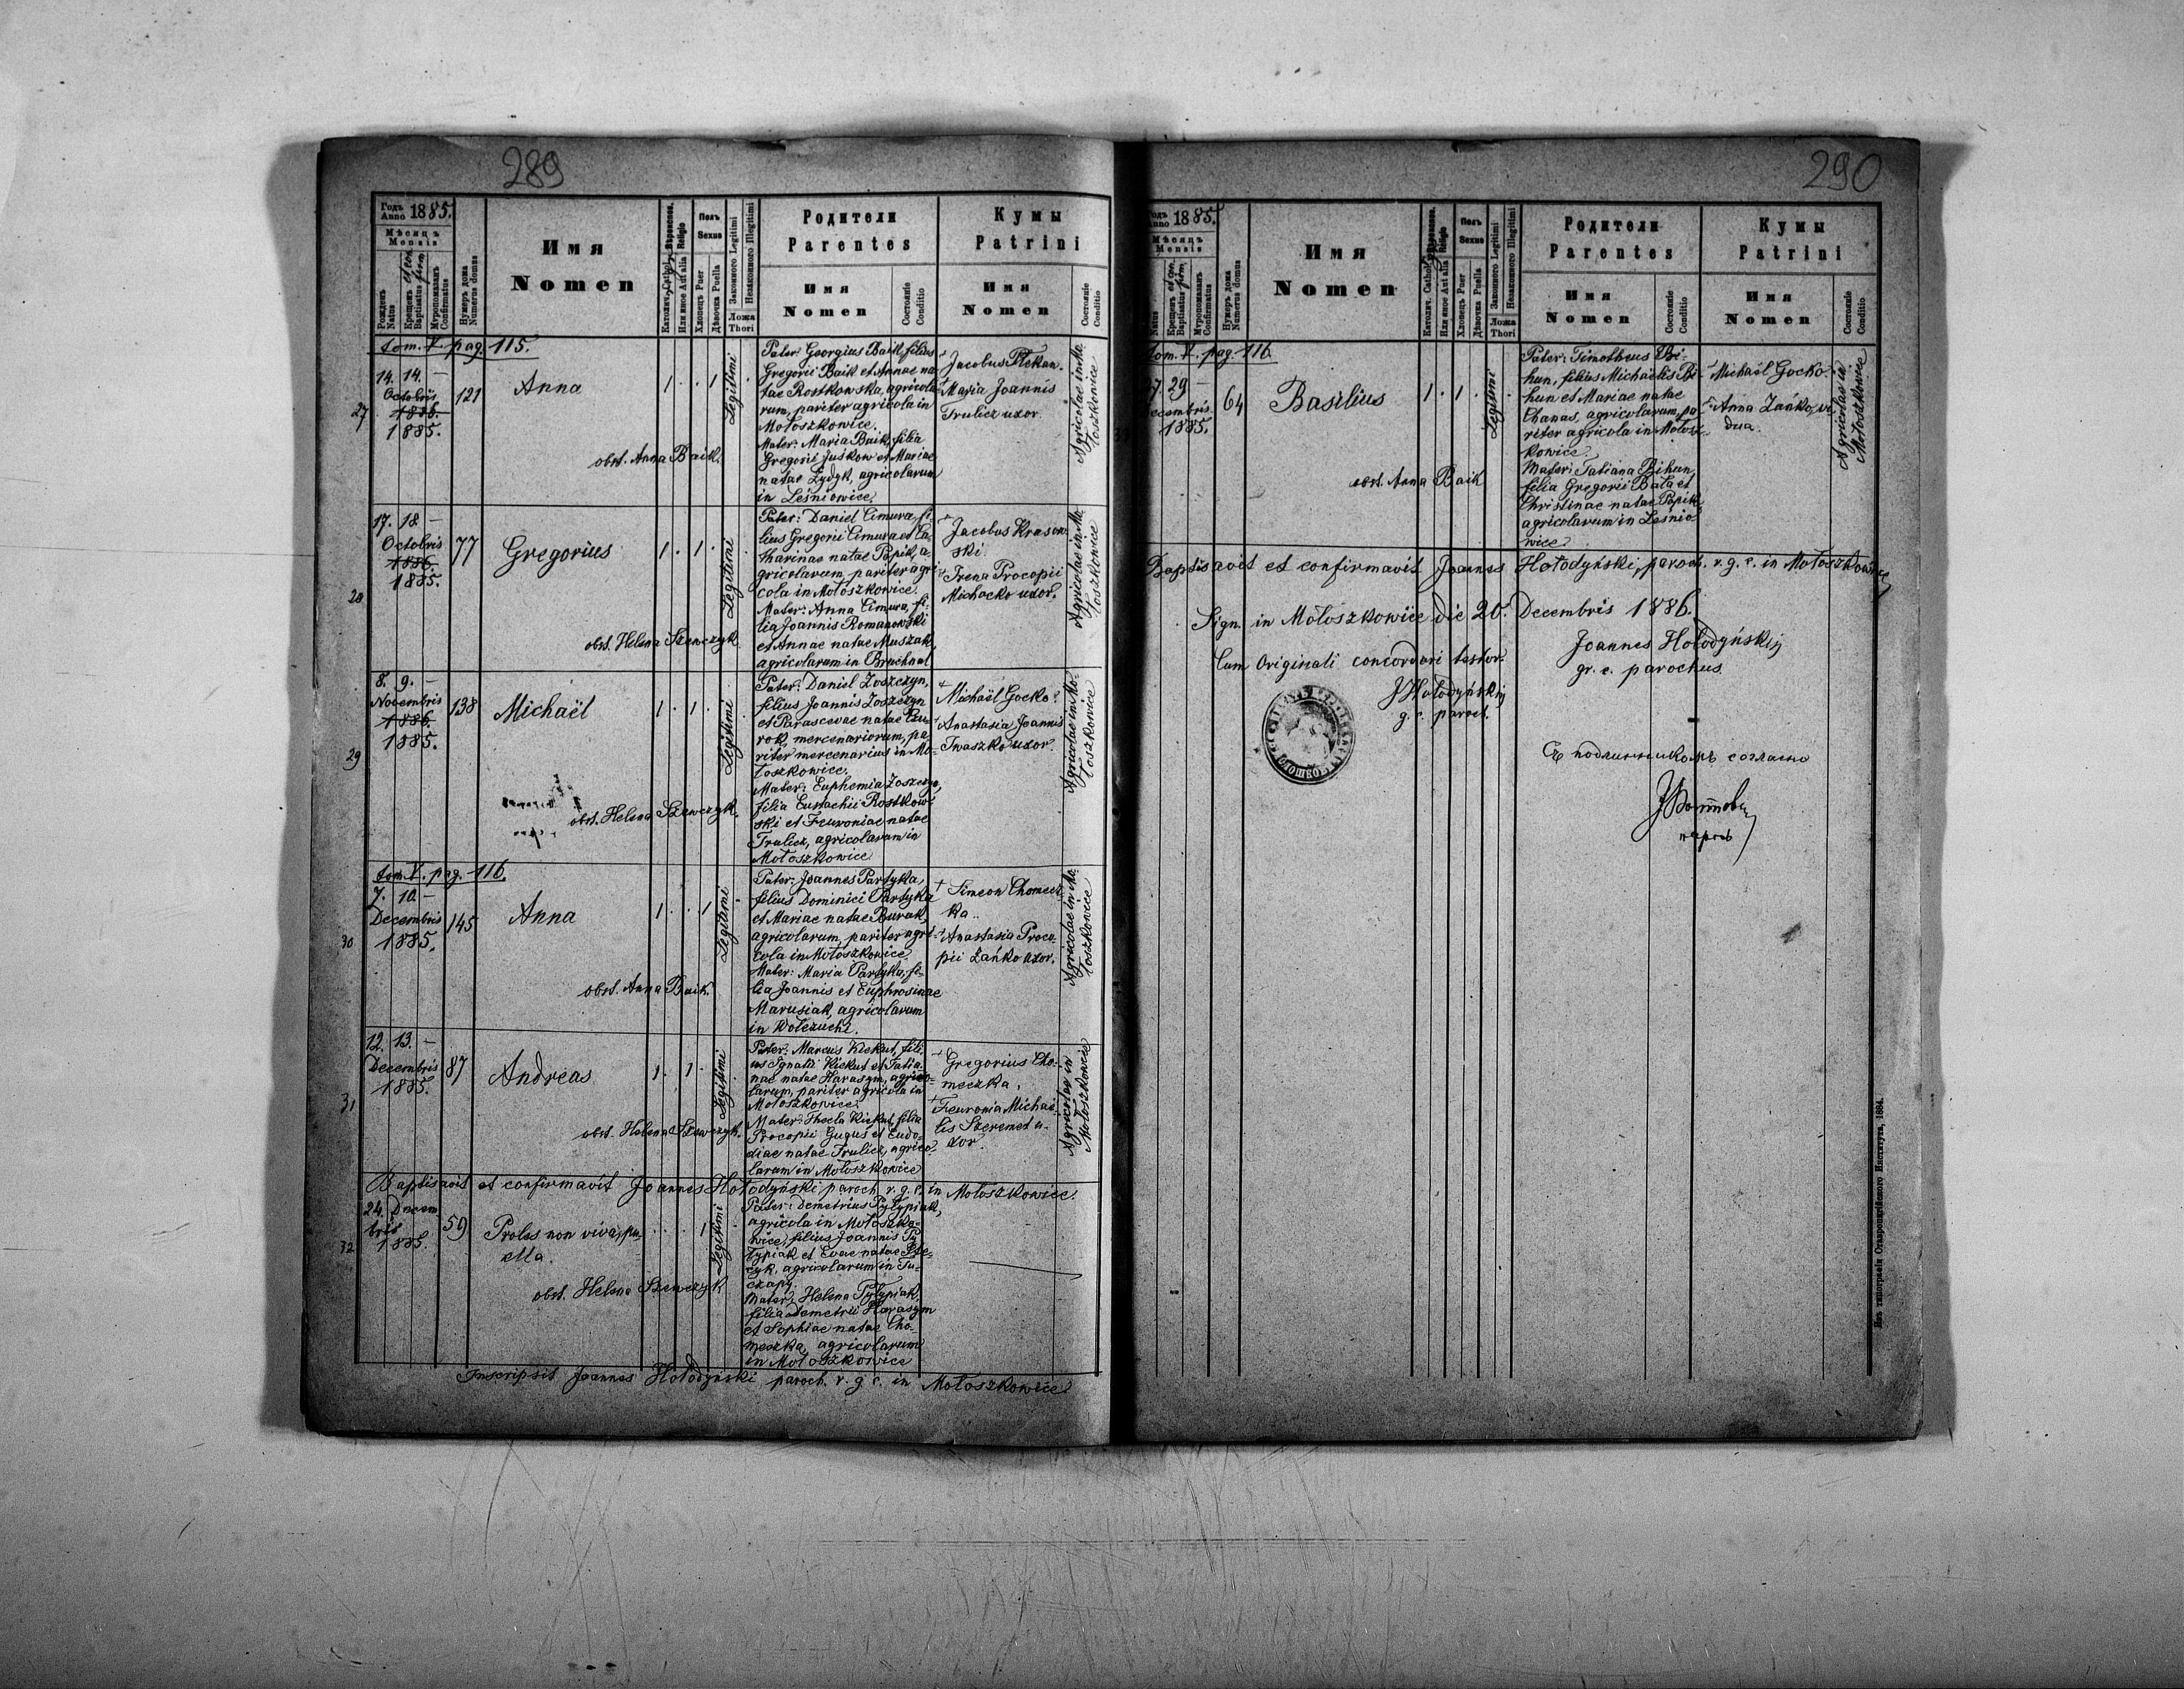 289
Годъ
Anno 1885.
Мѣсяцъ
Mensis
Рожденъ
Natus
Крещенъ
Baptisatus
et con
firm.
Мѵропомазанъ
Confirmatus
Нумеръ дома
Numerus domus
Имя
Nomen
Католич. Cathol.
Или иное Aut alia
Вѣроиспов.
Religio
Полъ
Sexus
Хлопецъ Puer
Дѣвочка Puella
Законного Legitimi
Незаконного Illegitimi
Ложа
Thori
Родители
Parentes
Имя
Nomen
Состояніе
Conditio
Кумы
Patrini
Имя
Nomen
Состояніе
Conditio
tom. V. pag. 115.
27
14. 14. –
Octobris
1886.
1885.
121
Anna
1 . . 1
Legitimi
obst. Anna Baik.
Pater: Georgius Baik, filius
Gregorii Baik et Annae na-
tae Rostkowska, agricola-
rum, pariter agricola in
Mołoszkowice.
Mater: Maria Baik, filia
Gregorii Juśkow et Mariae
natae Dydyk, agricolarum
in Leśniowice.
Jacobus Plekan.
Maria Joannis
Trulicz uxor.
Agricolae in Mo-
łoszkowice
28
17. 18 –
Octobris
1886.
1885.
77
Gregorius
1 . 1 .
Legitimi
obst. Helena Szewczyk
Pater: Daniel Cimura, fi-
lius Gregorii Cimura et Ca-
tharinae natae Papik, a-
gricolarum, pariter agri-
cola in Mołoszkowice.
Mater: Anna Cimura, fi-
lia Joannis Romanowski
et Annae natae Muszak,
agricolarum in Bruchnal
Jacobus Krasow-
ski.
Irena Procopii
Michacko uxor.
Agricolae in Mo-
łoszkowice
29
8. 9. –
Novembris
1886.
1885.
138
Michaël
1 . 1 .
Legitimi
obst. Helena Szewczyk.
Pater: Daniel Zoszczyn,
filius Joannis Zoszczyn
et Parascevae natae Bu-
rok, mercenariorum, pa-
riter mercenarius in Mo-
łoszkowice.
Mater: Euphemia Zoszczyn,
filia Eustachii Rostkow-
ski et Feuroniae natae
Trulicz, agricolarum in
Mołoszkowice
Michaël Gocko.
Anastasia Joannis
Iwaszko uxor.
Agricolae in Mo-
łoszkowice
tom. V. pag. 116.
30
7. 10 –
Decembris
1885.
145
Anna
1 . . 1
Legitimi
obst. Anna Baik.
Pater: Joannes Partyka,
filius Dominici Partyka
et Mariae natae Burak,
agricolarum, pariter agri-
cola in Mołoszkowice.
Mater: Maria Partyka, fi-
lia Joannis et Euphrosinae
Marusiak, agricolarum
in Wołczuchi.
Simeon Chomecz-
ka.
Anastasia Proco-
pii Zańko uxor.
Agricolae in Mo-
łoszkowice
31
12. 13. –
Decembris
1885.
87
Andreas
1 . 1 .
Legitimi
obst. Helena Szewczyk.
Pater: Marcus Kiekut, fili-
us Ignatii Kiekut et Tatia-
nae natae Harasym, agrico-
larum, pariter agricola in
Mołoszkowice.
Mater: Thecla Kiekut, filia
Procopii Gugus et Eudo-
diae natae Trulicz, agrico-
larum in Mołoszkowice
Gregorius Cho-
meczka.
Feuronia Michaë-
lis Szeremet u-
xor.
Agricolae in
Mołoszkowice
Baptisavit et confirmavit Joannes Hołodyński paroch. r. g. c. in Mołoszkowice.
32
24. Decem-
bris
1885.
59
Proles non viva, pu-
ella.
. . . 1
Legitimi
obst. Helena Szewczyk
Pater: Demetrius Pyłypiak,
agricola in Mołoszko-
wice, filius Joannis Py-
łypiak et Evae natae
agricolarum in Tu-
czapy.
Mater: Helena Pyłypiak,
filia Demetrii Harasym
et Sophiae natae Cho-
meszka, agricolarum
in Mołoszkowice
Inscripsit Joannes Hołodyński paroch. r. g. c. in Mołoszkowice
290
Годъ
Anno 1885.
Мѣсяцъ
Mensis
Natus
Крещенъ
Baptisatus
et con
firm.
Мѵропомазанъ
Confirmatus
Нумеръ дома
Numerus domus
Имя
Nomen
Католич. Cathol.
Или иное Aut alia
Вѣроиспов.
Religio
Полъ
Sexus
Хлопецъ Puer
Дѣвочка Puella
Законного Legitimi
Незаконного Illegitimi
Ложа
Thori
Родители
Parentes
Имя
Nomen
Состояніе
Conditio
Кумы
Patrini
Имя
Nomen
Состояніе
Conditio
tom. V. pag. 116
27. 29 –
Decembris
1885.
64
Basilius
1 . 1 .
Legitimi
obst. Anna Baik
Pater: Timotheus Bi-
hun, filius Michaëlis Bi-
hun et Mariae natae
Chanas, agricolarum, pa-
riter agricola in Mołosz-
kowice.
Mater: Tatiana Bihun,
filia Gregorii Bata et
Christinae natae Papik,
agricolarum in Leśnio-
wice
Michaël Gocko.
Anna Zańko, vi-
dua.
Agricolae in
Mołoszkowice
Baptisavit et confirmavit Joannes Hołodyński, paroch. r. g. c. in Mołoszkowice
Sign. in Mołoszkowice die 20. Decembris 1886.
Joannes Hołodyńskij
gr. c. parochus.
Cum Originali concordari testor.
JHołodyńskij
g. c. paroch.
Съ подлинникомъ согласно
парохъ
Изъ типографіи Ставропигійского Института, 1884.